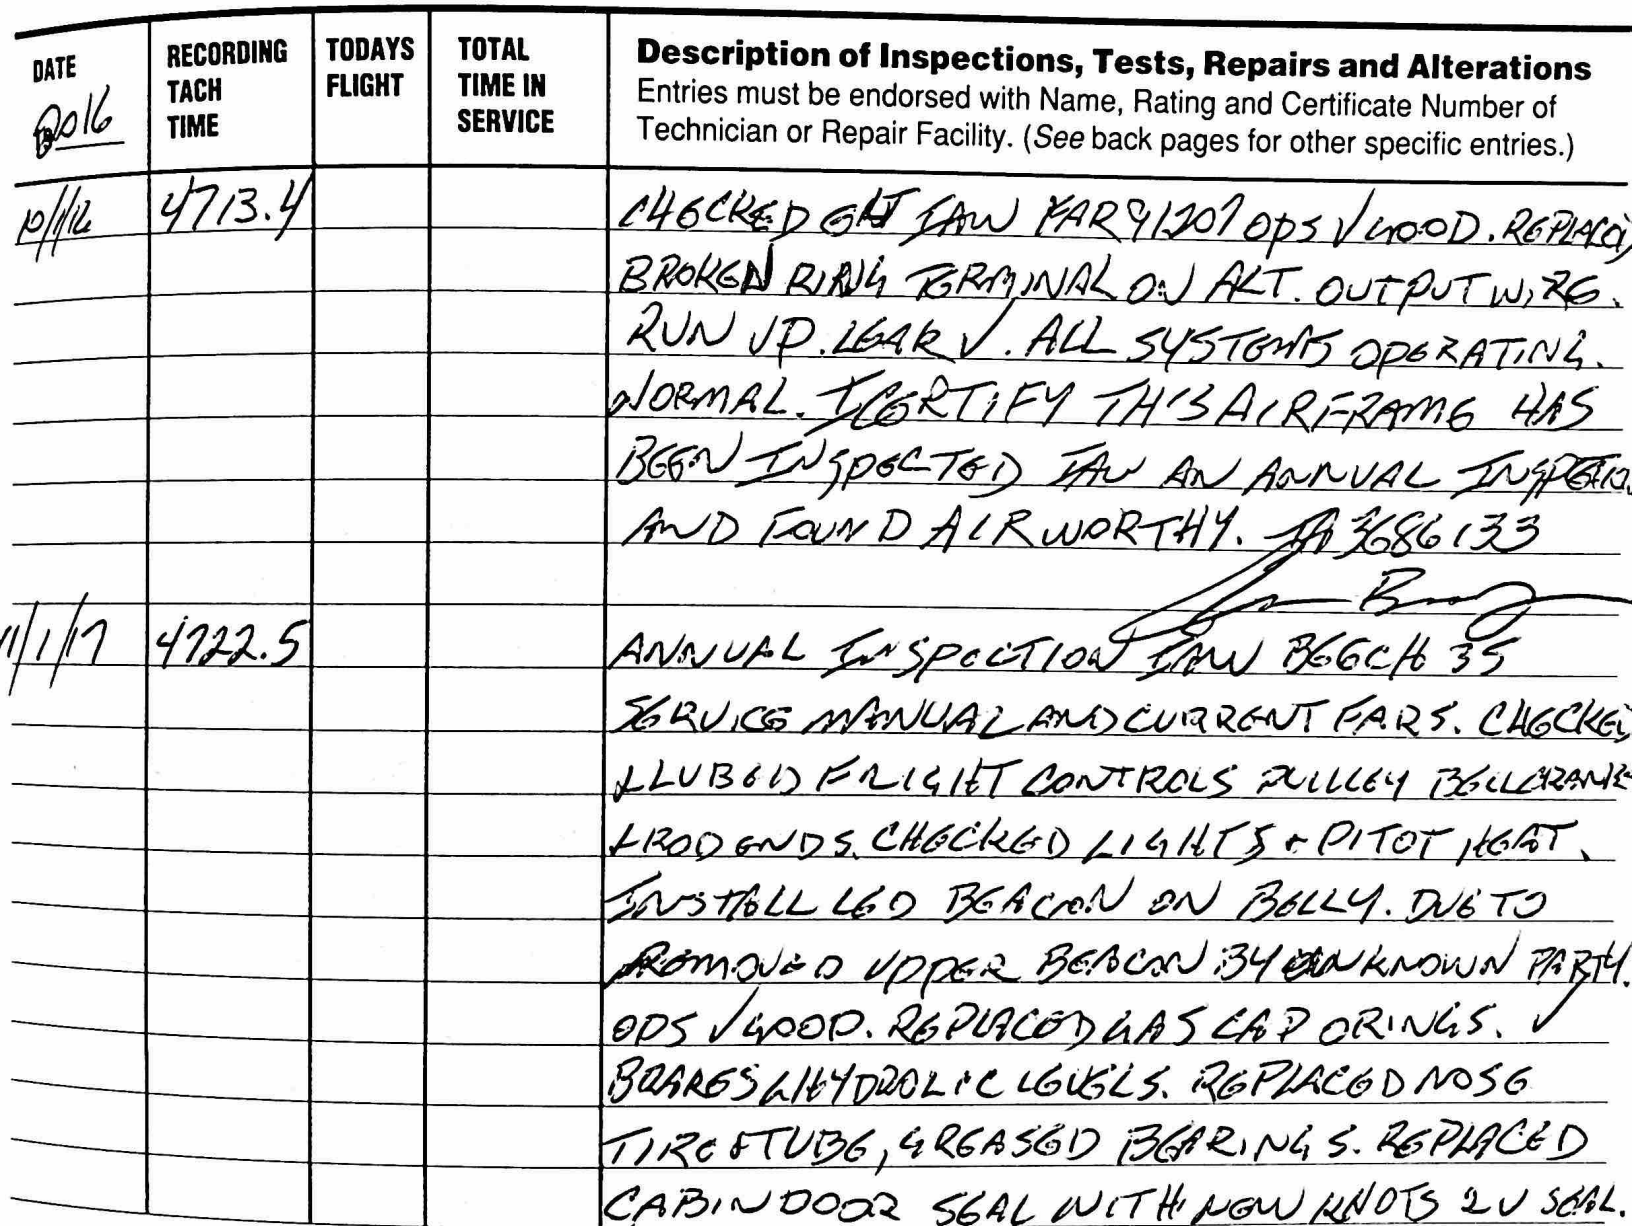 DATE
2016
RECORDING
TACH
TIME
TODAYS
FLIGHT
TOTAL
TIME IN
SERVICE
Description of Inspections, Tests, Repairs and Alterations
Entries must be endorsed with Name, Rating and Certificate Number of
Technician or Repair Facility. (See back pages for other specific entries.)
4713.4 CHECKED ELT IAW FAR 91207 OPS √ GOOD. REPLACED
BROKEN RING TERMINAL ON ALT. OUTPUT WIRE.
RUN UP. LEAK √. ALL SYSTEMS OPERATING.
NORMAL. I CERTIFY THIS AIRFRAME HAS
BEEN INSPECTED IAW AN ANNUAL
AND FOUND AIRWORTHY. IA 3686133
11/1/17 4722.5 ANNUAL INSPECTION IAW BEECH 35
SERVICE MANUAL AND CURRENT FARS. CHECKED
& LUBED FLIGHT CONTROLS PULLEY BELLCRANK
& ROD ENDS. CHECKED LIGHTS + PITOT HEAT.
INSTALL LED BEACON ON BELLY. DUE TO
REMOVED UPPER BEACON BY UNKNOWN PARTY.
OPS √ GOOD. REPLACED GAS CAP ORINGS. √
BRAKES & HYDROLIC LEVELS. REPLACED NOSE
TIRE & TUBE, GREASED BEARINGS. REPLACED
CABIN DOOR SEAL WITH NEW KNOTS 2U SEAL.